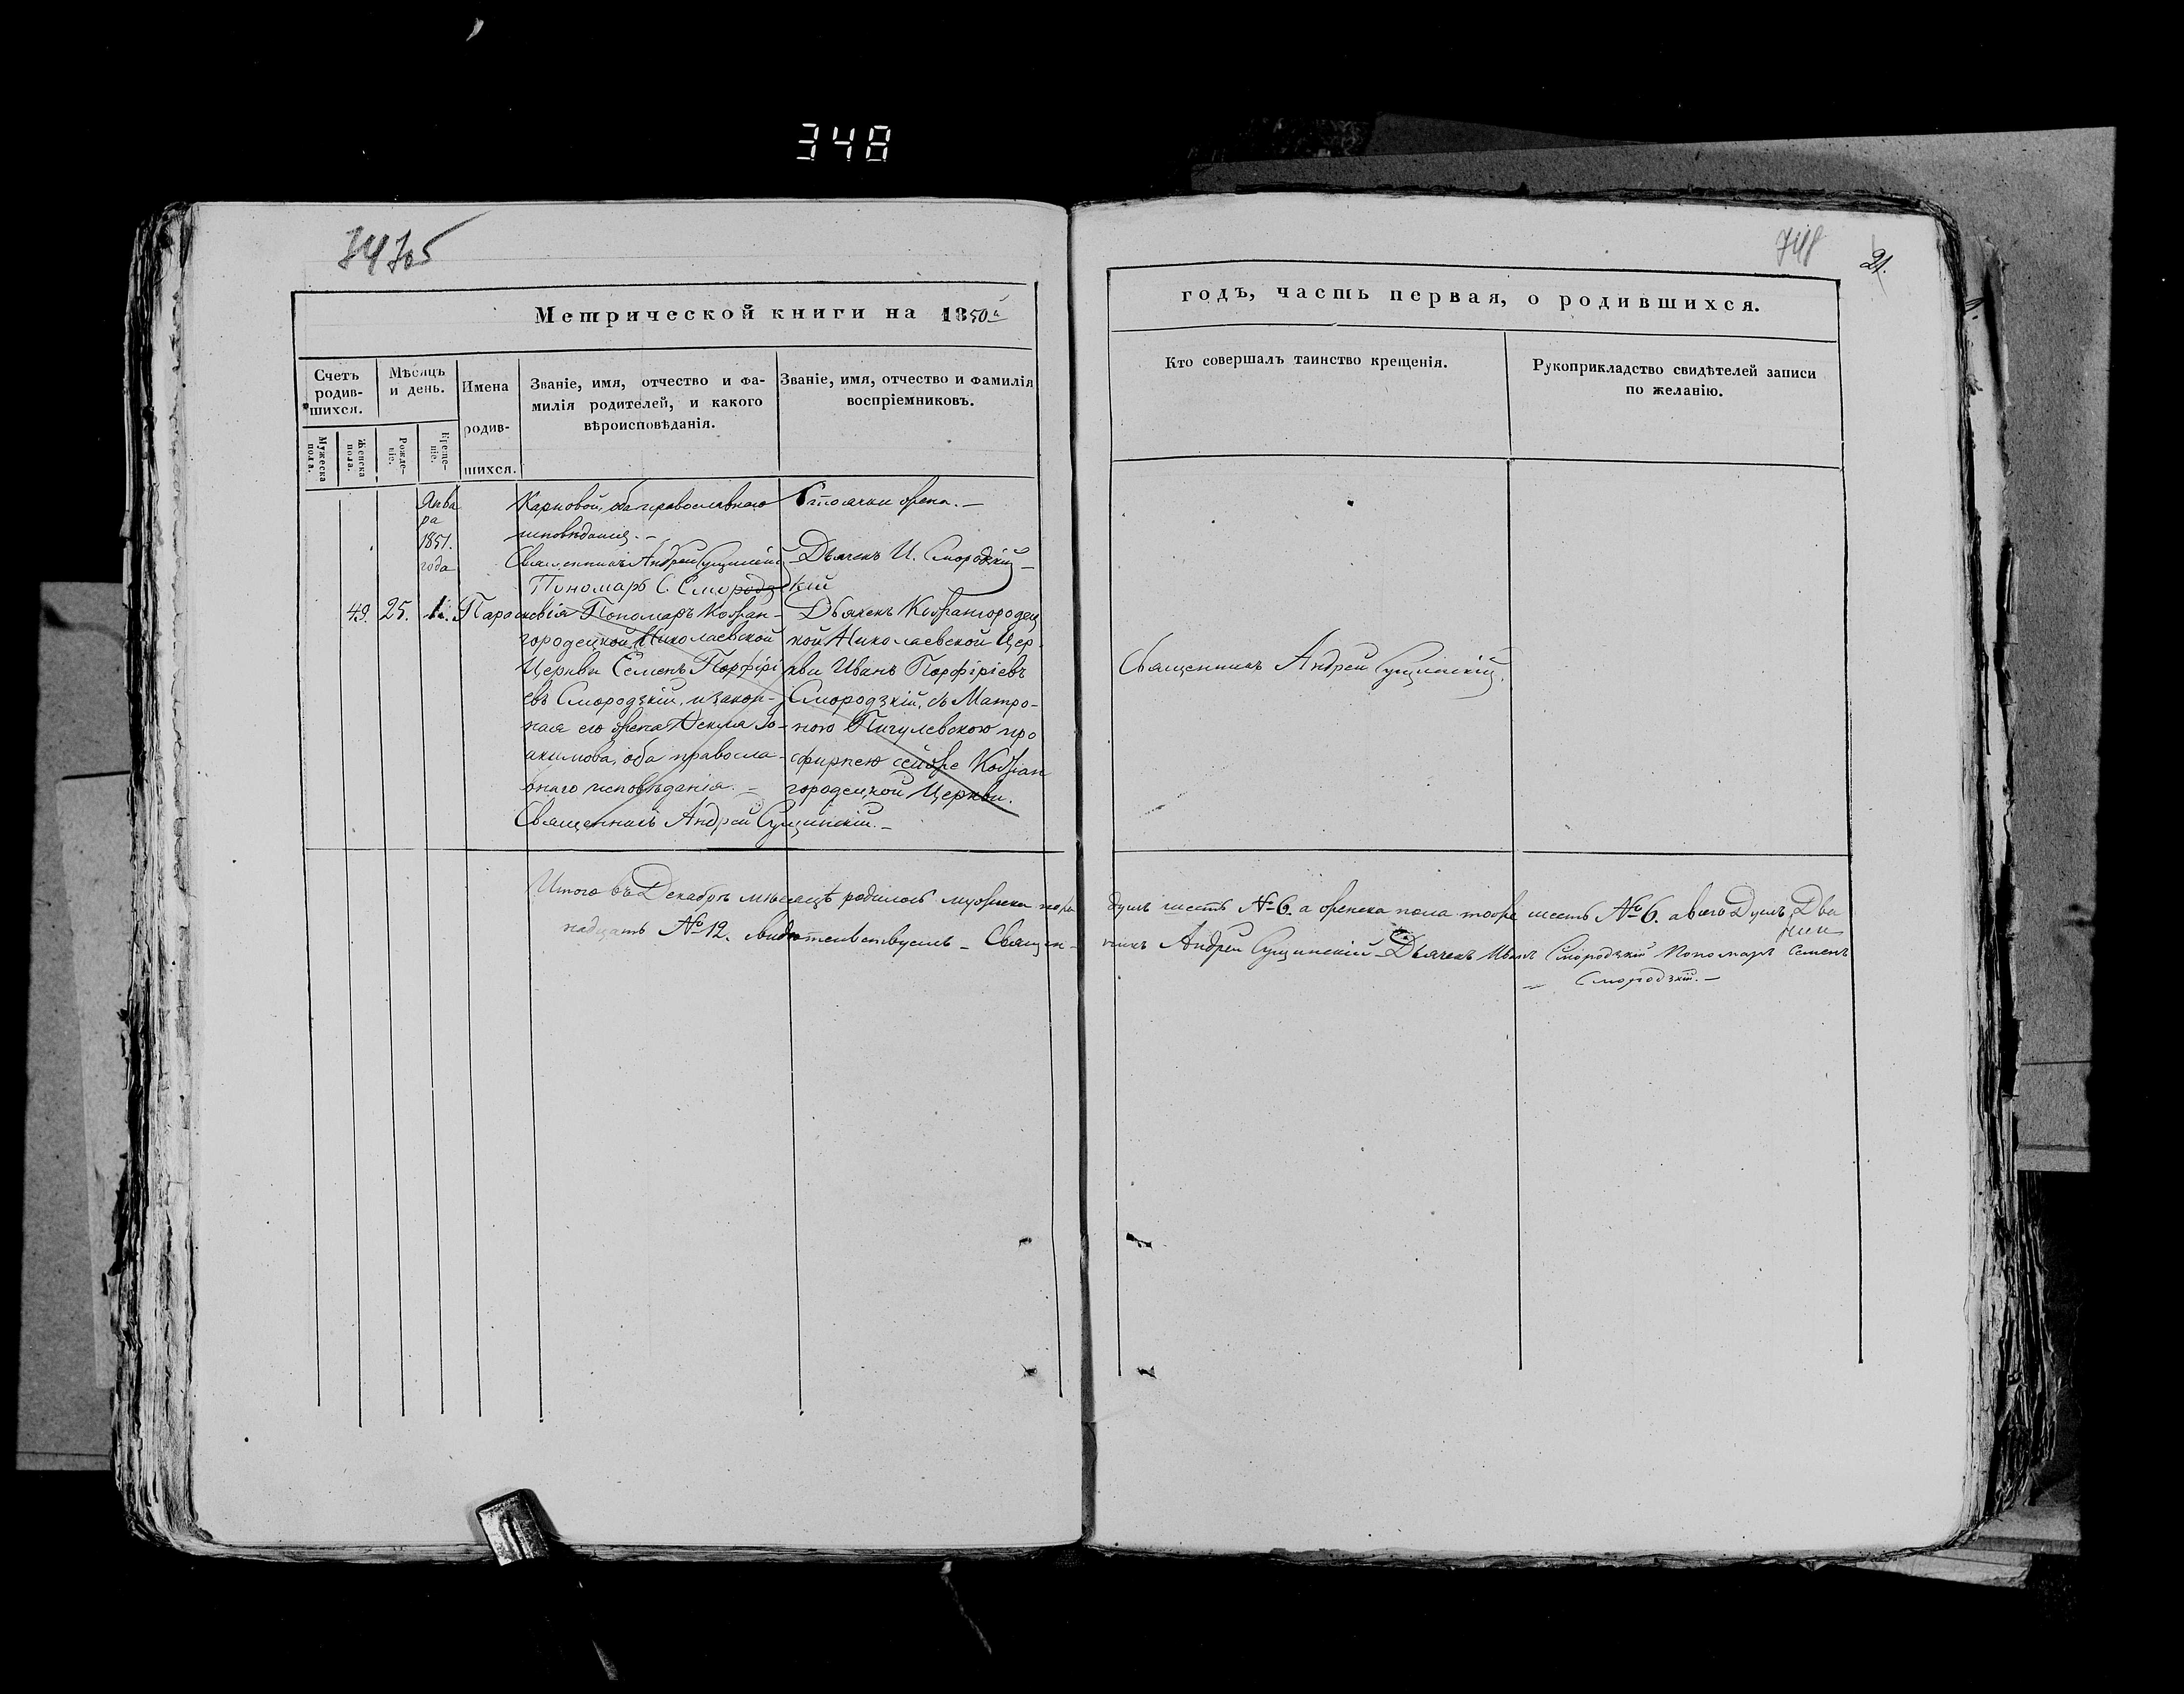 348
748
21.
Метрической книги на 1850й
годъ, часть первая, о родившихся.
Счетъ родив-шихся.
Мужеска пола.
Женска пола.
Мѣсяцъ и день.
Рожде-ніе.
Креще-ніе.
Имена родив-шихся.
Званіе, имя, отчество и фа-
милія родителей, и какого
вѣроисповѣданія.
Званіе, имя, отчество и фамилія
воспріемниковъ.
Кто совершалъ таинство крещенія.
Рукоприкладство свидѣтелей записи
по желанію.
Янва
ра
1851.
года
Карповой, оба православнаго
исповѣданія. –
жена. –
Священникъ Андрей Сущинскій – Дьячекъ И. Смородзкій –
Пономарь С. Смородзкій
49. 25. 1. Параскевія
Пономарь Кожан-
городецкой Николаевской
Церкви Семенъ Порфірі
евъ Смородзкій, и закон-
ная его жена Текля Іо-
акимова, оба правосла-
внаго исповѣданія. –
Священникъ Андрей Сущинскій. –
Дьячекъ Кожангородец
кой Николаевской Цер-
кви Иванъ Порфіріевъ
Смородзкій, съ Матро-
ною Пигулевскою про
сфирнею сейже Кожан
городецкой Церкви.
Священникъ Андрей Сущинскій.
Итого въ Декабрѣ мѣсяцѣ родилось мужеска пола душъ шесть № 6. а женска пола тоже шесть № 6. а всего Душъ Две
надцать № 12. свидѣтельствуемъ – Священ-никъ Андрей Сущинскій – Дьячекъ Иванъ Смородзкій Пономарь Семенъ
Смородзкій. –